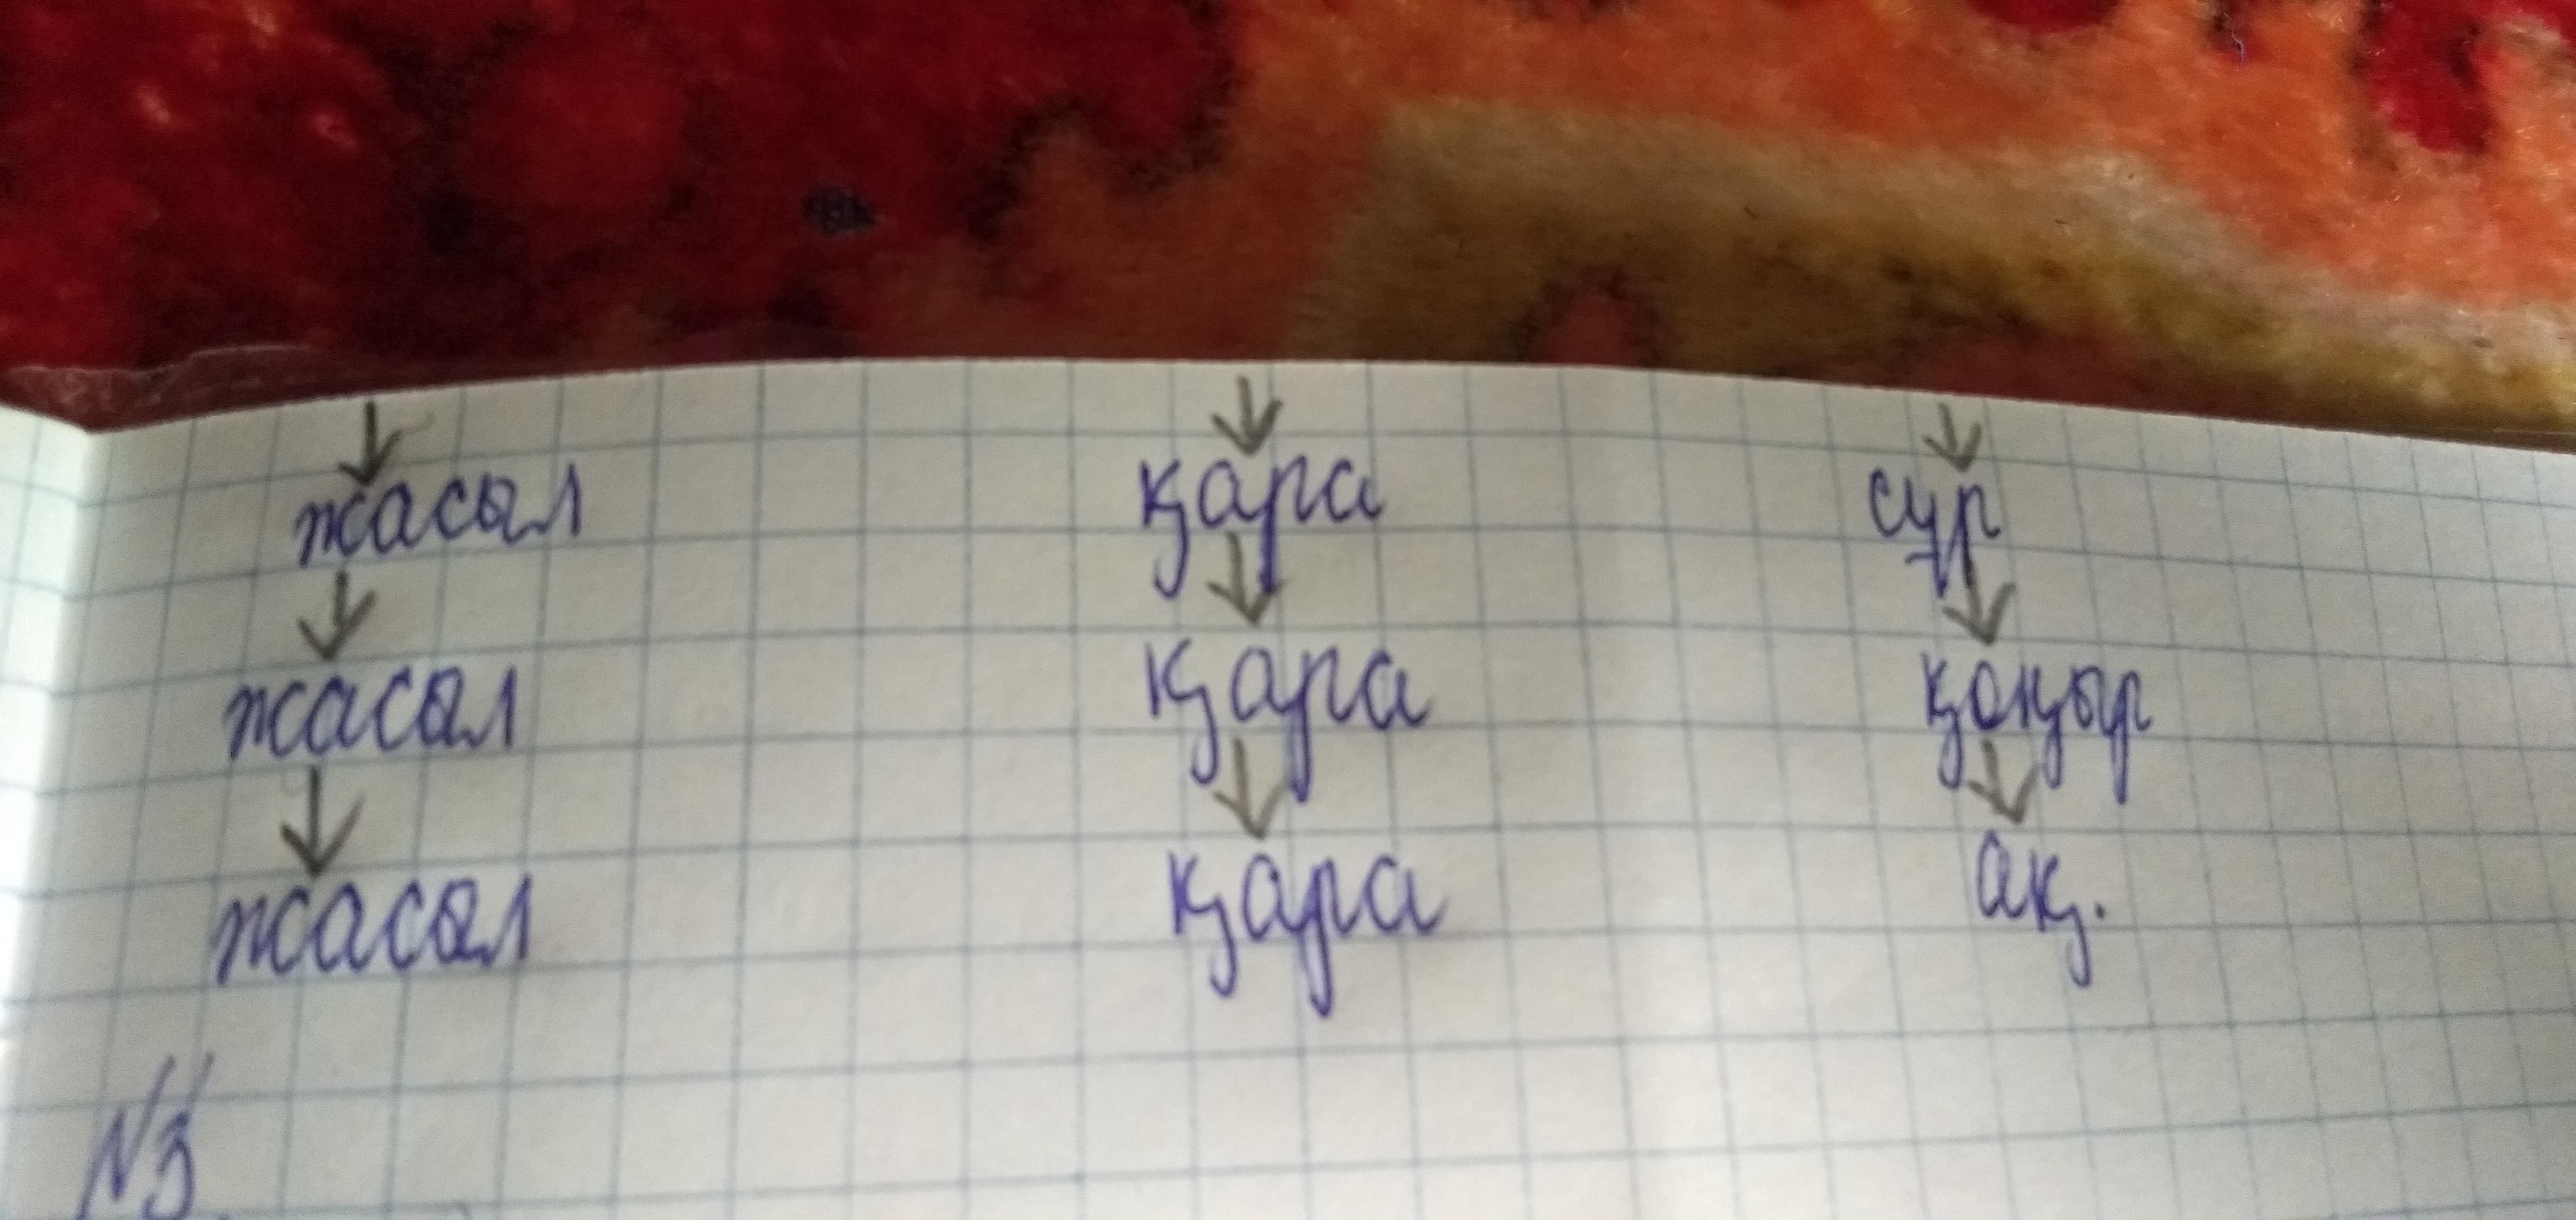 жасыл қара сұр
жасыл қара қоңыр
жасыл қара ақ.
№3